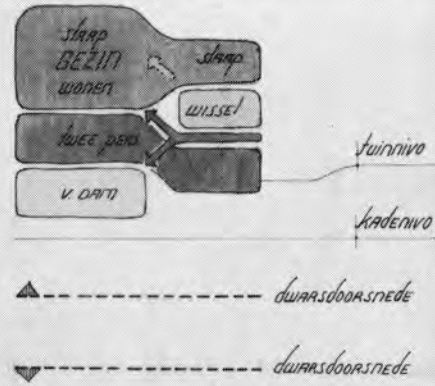 slaap
GEZIN
wonen
slaap
wissel
twee pers.
v. dam
tuinnivo
kadenivo
dwarsdoorsnede
dwarsdoorsnede